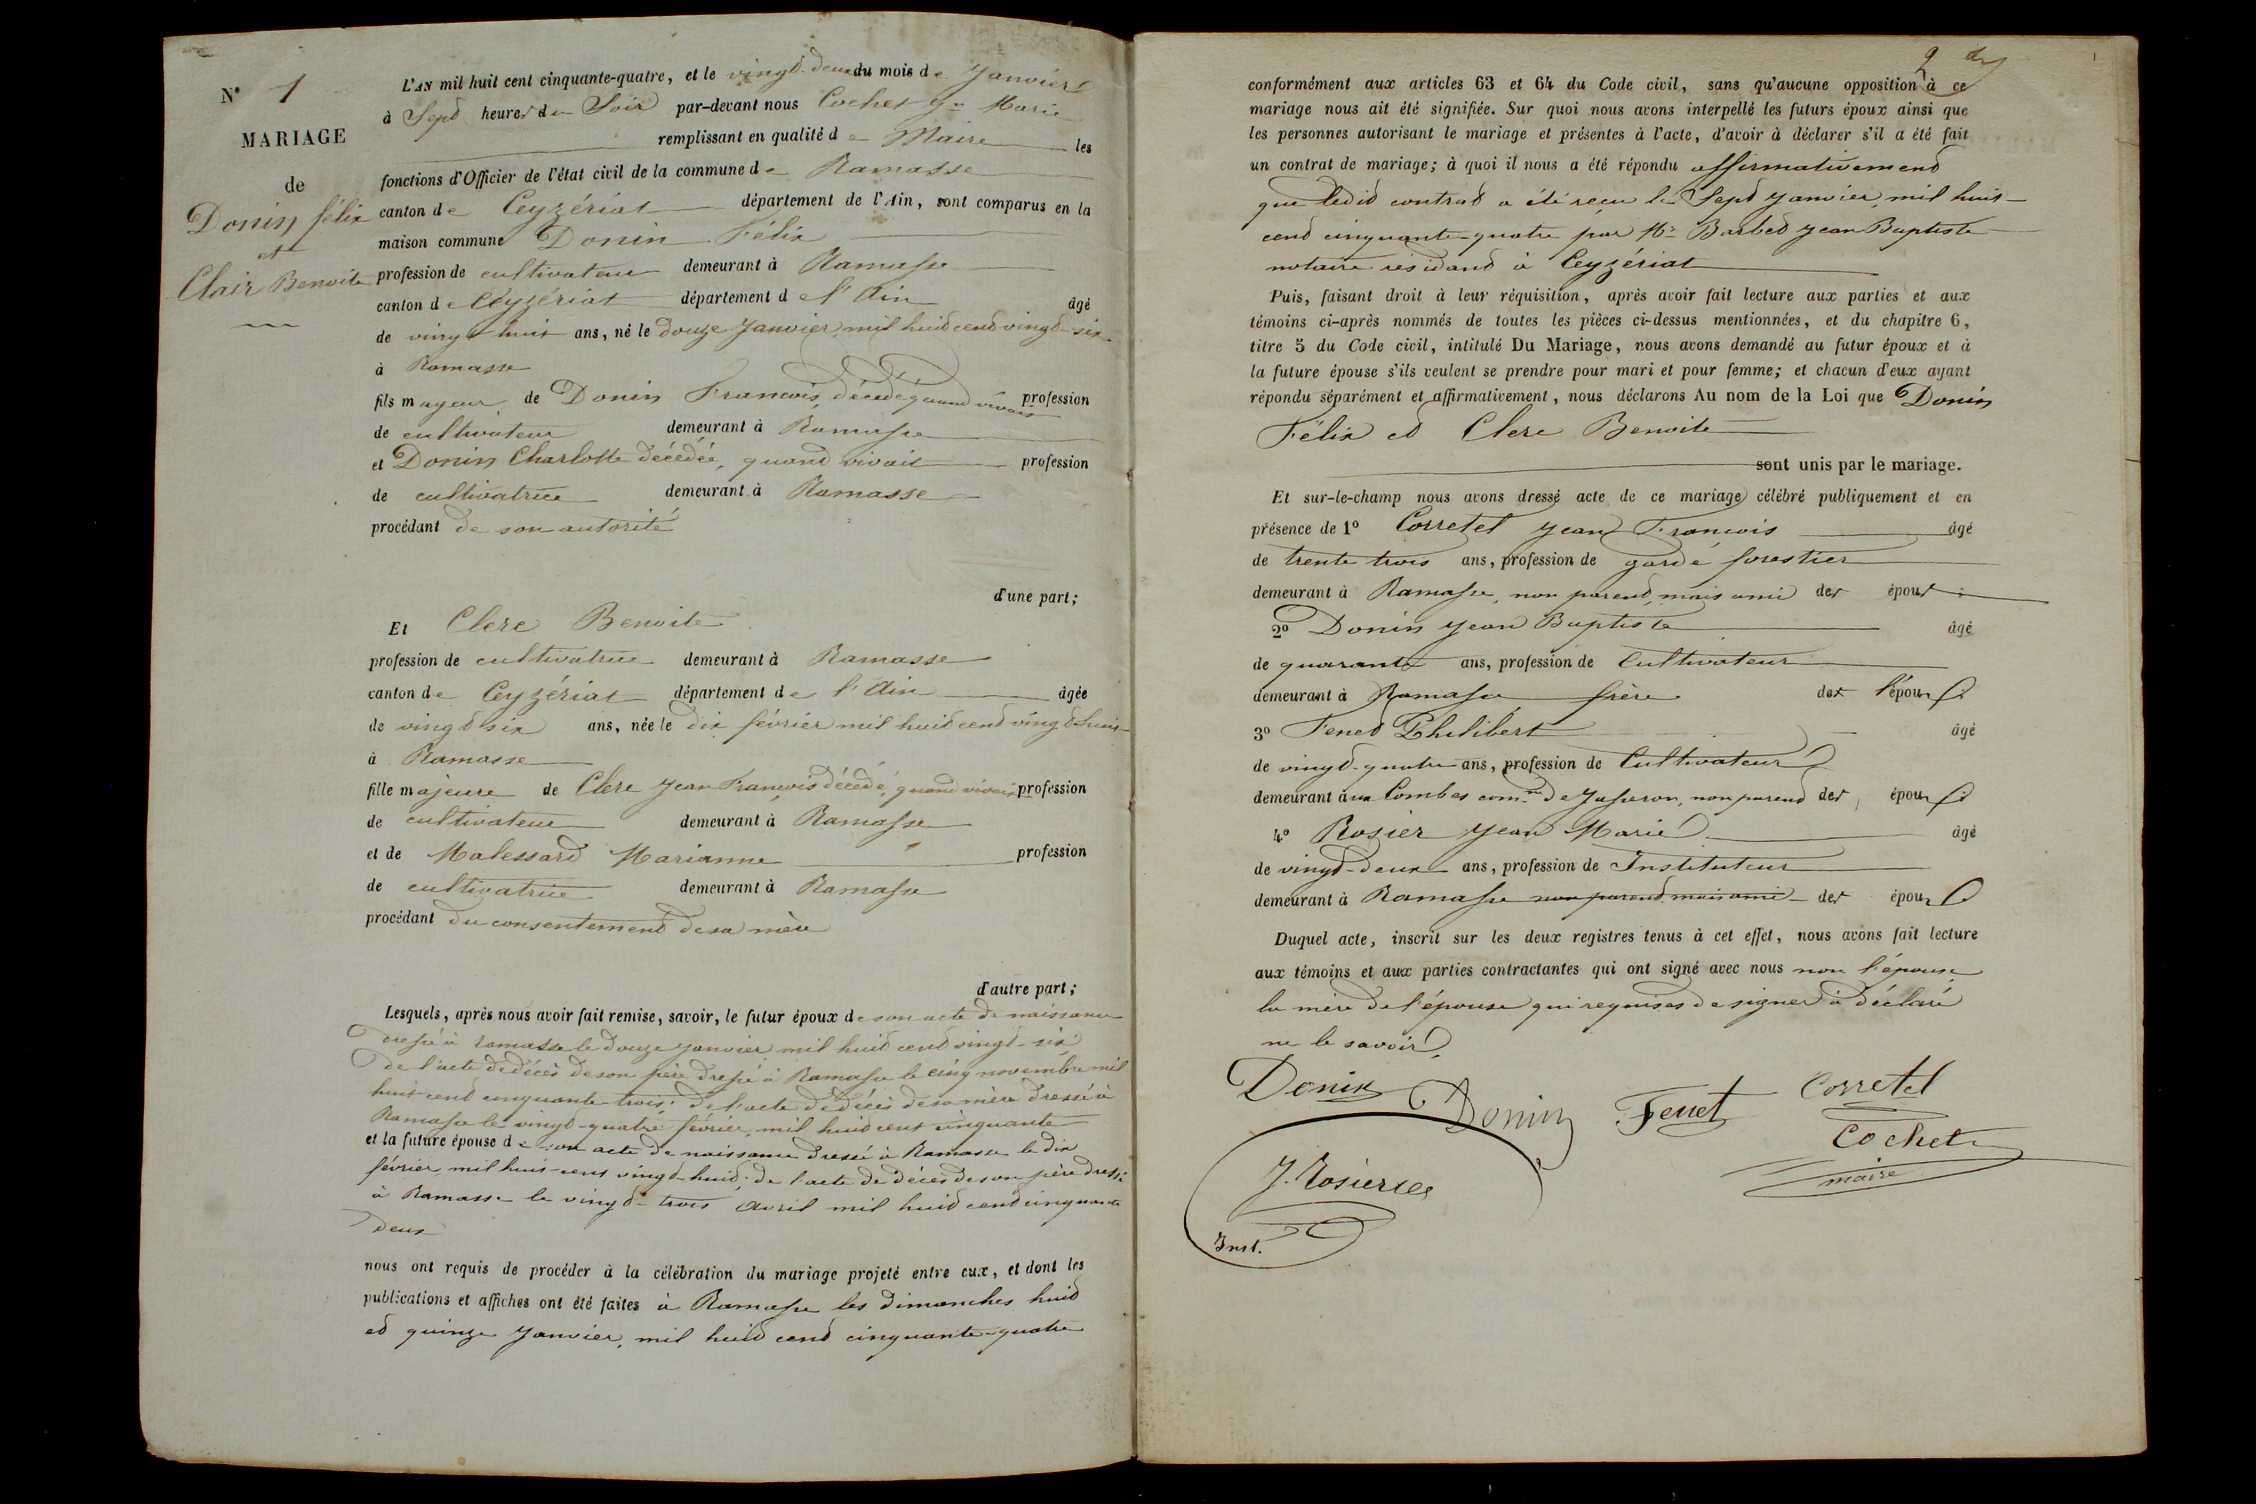 N° 1
MARIAGE
de
Donin félix
et
Clair Benoite
L'AN mil huit cent cinquante-quatre, et le vingt-deux du mois de Janvier
à Sept heures du Soir par-devant nous Cochet Marie
remplissant en qualité de Maire les
fonctions d'Officier de l'état civil de la commune de Ramasse
canton de Ceyzériat département de l'Ain, sont comparus en la
maison commune Donin Félix
profession de cultivateur demeurant à Ramasse
canton de Ceyzériat département de l'Ain âgé
de vingt huit ans, né le douze Janvier mil huit cent vingt-six
à Ramasse
fils mageur de Donin Francois, décédé quand vivait profession
de cultivateur demeurant à Ramasse
et Donin Charlotte décédée, quand vivait profession
de cultivatrice demeurant à Ramasse
procédant de son autorité
d'une part;
Et Clerc Benoite
profession de cultivatrice demeurant à Ramasse
canton de Ceyzériat département de l'Ain âgée
de vingt six ans, née le dix février mil huit cent vingt huit
à Ramasse
fille majeure de Clerc Jean François décédé, quand vivait profession
de cultivateur demeurant à Ramasse
et de Malessard Marianne profession
de cultivatrice demeurant à Ramasse
procédant du consentement de sa mère
d'autre part;
Lesquels, après nous avoir fait remise, savoir, le futur époux de son acte de naissance
dressé à ramasse le douze janvier mil huit cent vingt-six
De l'acte de décès de son père dressé à Ramasse le cinq novembre mil
huit cent cinquante trois; de l'acte de décès de sa mère dressé à
Ramasse le vingt-quatre février mil huit cent cinquante
et la future épouse de son acte de naissance dressé à Ramasse le dix
février mil huit cent vingt-huit; de l'acte de décès de son père dressé
à Ramasse le vingt-trois avril mil huit cent cinquante
deux
nous ont requis de procéder à la célébration du mariage projeté entre eux, et dont les
publications et affiches ont été faites à Ramasse les dimanches huit
et quinze janvier, mil huit cent cinquante-quatre
2
conformément aux articles 63 et 64 du Code civil, sans qu'aucune opposition à ce
mariage nous ait été signifiée. Sur quoi nous avons interpellé les futurs époux ainsi que
les personnes autorisant le mariage et présentes à l'acte, d'avoir à déclarer s'il a été fait
un contrat de mariage; à quoi il nous a été répondu affirmativement
que ledit contrat a été reçu le Sept janvier, mil huit
cent cinquante-quatre par Me Barbet Jean Baptiste
notaire résidant à Ceyzériat
Puis, faisant droit à leur réquisition, après avoir fait lecture aux parties et aux
témoins ci-après nommés de toutes les pièces ci-dessus mentionnées, et du chapitre 6,
titre 5 du Code civil, intitulé Du Mariage, nous avons demandé au futur époux et à
la future épouse s'ils veulent se prendre pour mari et pour femme; et chacun d'eux ayant
répondu séparément et affirmativement, nous déclarons Au nom de la Loi que Donin
Félix et Clerc Benoite
sont unis par le mariage.
Et sur-le-champ nous avons dressé acte de ce mariage célébré publiquement et en
présence de 1° Corretel Jean Francois âgé
de trente trois ans, profession de garde forestier
demeurant à Ramasse, non parent, mais ami des époux
2° Donin Jean Baptiste âgé
de quarante ans, profession de Cultivateur
demeurant à Ramasse frère de l'époux
3° Fenet Philibert âgé
de vingt-quatre ans, profession de Cultivateur
demeurant aux Combes comne de Jasseron, non parent des époux
4° Rosier Jean Marie âgé
de vingt-deux ans, profession de Instituteur
demeurant à Ramasse non parent mais ami des époux
Duquel acte, inscrit sur les deux registres tenus à cet effet, nous avons fait lecture
aux témoins et aux parties contractantes qui ont signé avec nous non l'épouse
la mère de l'épouse qui requises de signer à déclaré
ne le savoir
Donin
Donin
Fenet
Corretel
Cochet
maire
Inst.